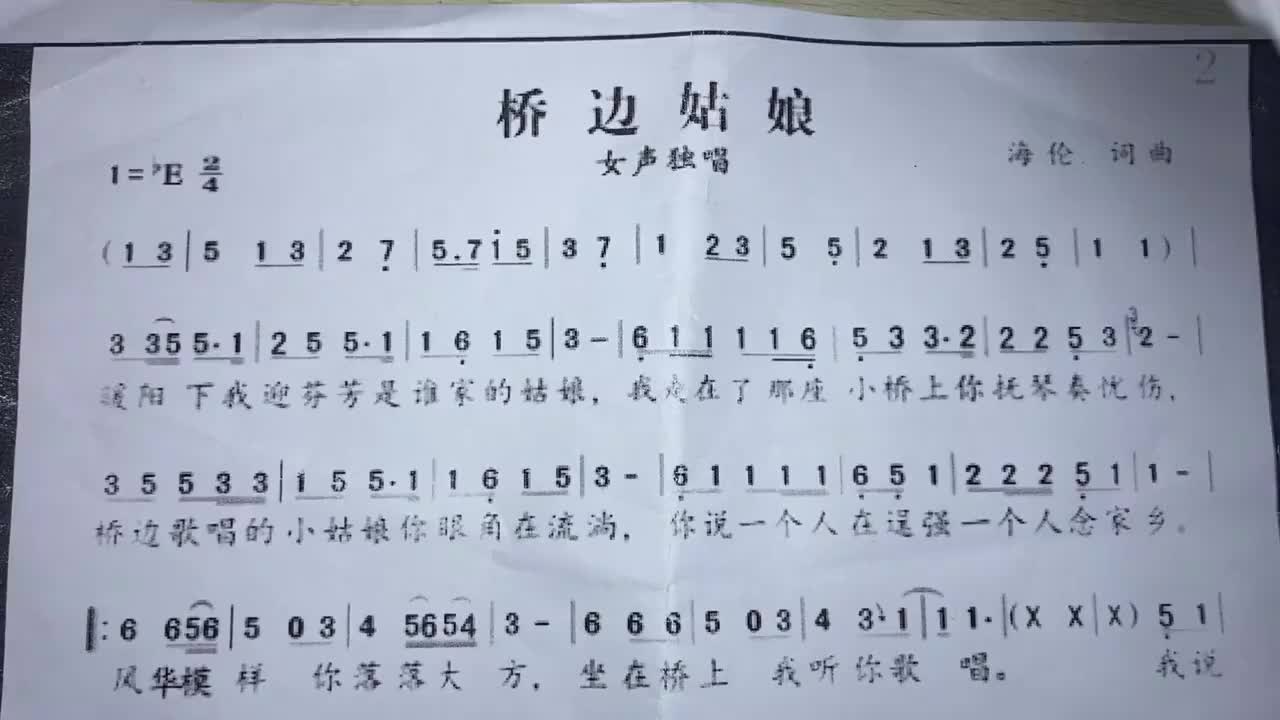 2
桥边姑娘
女声独唱
海伦 词曲
1=♭E 2/4
(1 3 | 5 1 3 | 2 7̣ | 5.7 i 5 | 3 7̣ | 1 2 3 | 5 5̣ | 2 1 3 | 2 5̣ | 1 1) |
3 35 5·1 | 2 5 5·1 | 1 6̣ 1 5 | 3 - | 6̣ 1 1 1 1 6̣ | 5̣ 3 3·2 | 2 2 5̣ 3 | 3 2 - |
暖阳下我迎芬芳是谁家的姑娘，我走在了那座小桥上你抚琴奏忧伤，
3 5 5 3 3 | 1 5 5·1 | 1 6̣ 1 5 | 3 - | 6̣ 1 1 1 1 | 6̣ 5̣ 1 | 2 2 2 5̣ 1 | 1 - |
桥边歌唱的小姑娘你眼角在流淌，你说一个人在逞强一个人念家乡。
‖: 6 656 | 5 0 3 | 4 5654 | 3 - | 6 6 6 | 5 0 3 | 4 3 1 | 1 1· | (X X | X) 5̣ 1 |
风华模样 你落落大方，坐在桥上 我听你歌唱。 我说